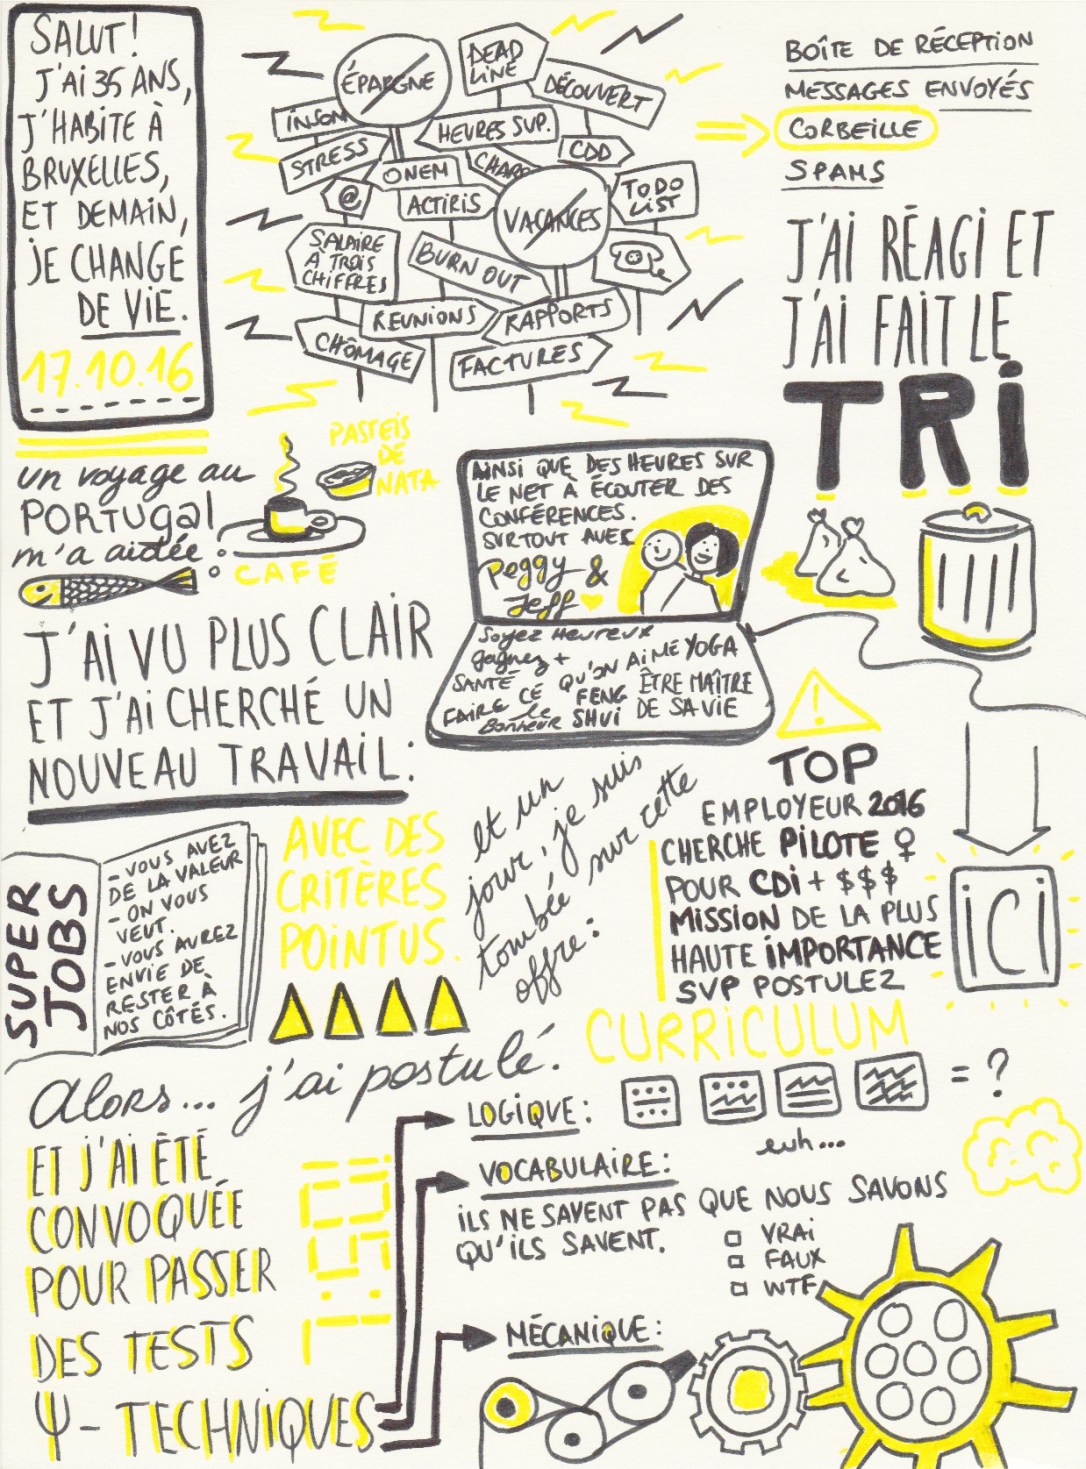 SALUT!
J'AI 35 ANS,
J'HABITE À
BRUXELLES,
ET DEMAIN,
JE CHANGE
DE VIE.
17.10.16
ÉPARGNE
DEAD
LINE
DÉCOUVERT
INSOM
HEURES SUP.
STRESS
CDD
ONEM
CHARG
TO DO
LIST
@
ACTIRIS
VACANCES
SALAIRE
À TROIS
CHIFFRES
BURN OUT
REUNIONS
RAPPORTS
CHÔMAGE
FACTURES
BOÎTE DE RÉCEPTION
MESSAGES ENVOYÉS
CORBEILLE
SPAMS
J'AI RÉAGI ET
J'AI FAIT LE
TRI
un voyage au
PORTUGAL
m'a aidée :
PASTEIS
DE
NATA
CAFÉ
AINSI QUE DES HEURES SUR
LE NET À ÉCOUTER DES
CONFÉRENCES.
SURTOUT AVEC
Peggy &
Jeff
Soyez Heureux
gagnez +
SANTÉ
FAIRE CE QU'ON AIME YOGA
FENG
SHUI
ÊTRE MAÎTRE
DE SA VIE
le
Bonheur
J'AI VU PLUS CLAIR
ET J'AI CHERCHÉ UN
NOUVEAU TRAVAIL :
SUPER
JOBS
- VOUS AVEZ
DE LA VALEUR
- ON VOUS
VEUT.
- VOUS AUREZ
ENVIE DE
RESTER À
NOS CÔTÉS.
AVEC DES
CRITÈRES
POINTUS.
et un
jour, je suis
tombée sur cette
offre :
!
TOP
EMPLOYEUR 2016
CHERCHE PILOTE ♀
POUR CDI + $$$
MISSION DE LA PLUS
HAUTE IMPORTANCE
SVP POSTULEZ
ICI
Alors... j'ai postulé.
CURRICULUM
ET J'AI ÉTÉ
CONVOQUÉE
POUR PASSER
DES TESTS
Ψ - TECHNIQUES
LOGIQUE :
= ?
euh...
VOCABULAIRE :
ILS NE SAVENT PAS QUE NOUS SAVONS
QU'ILS SAVENT.
VRAI
FAUX
WTF
MÉCANIQUE :